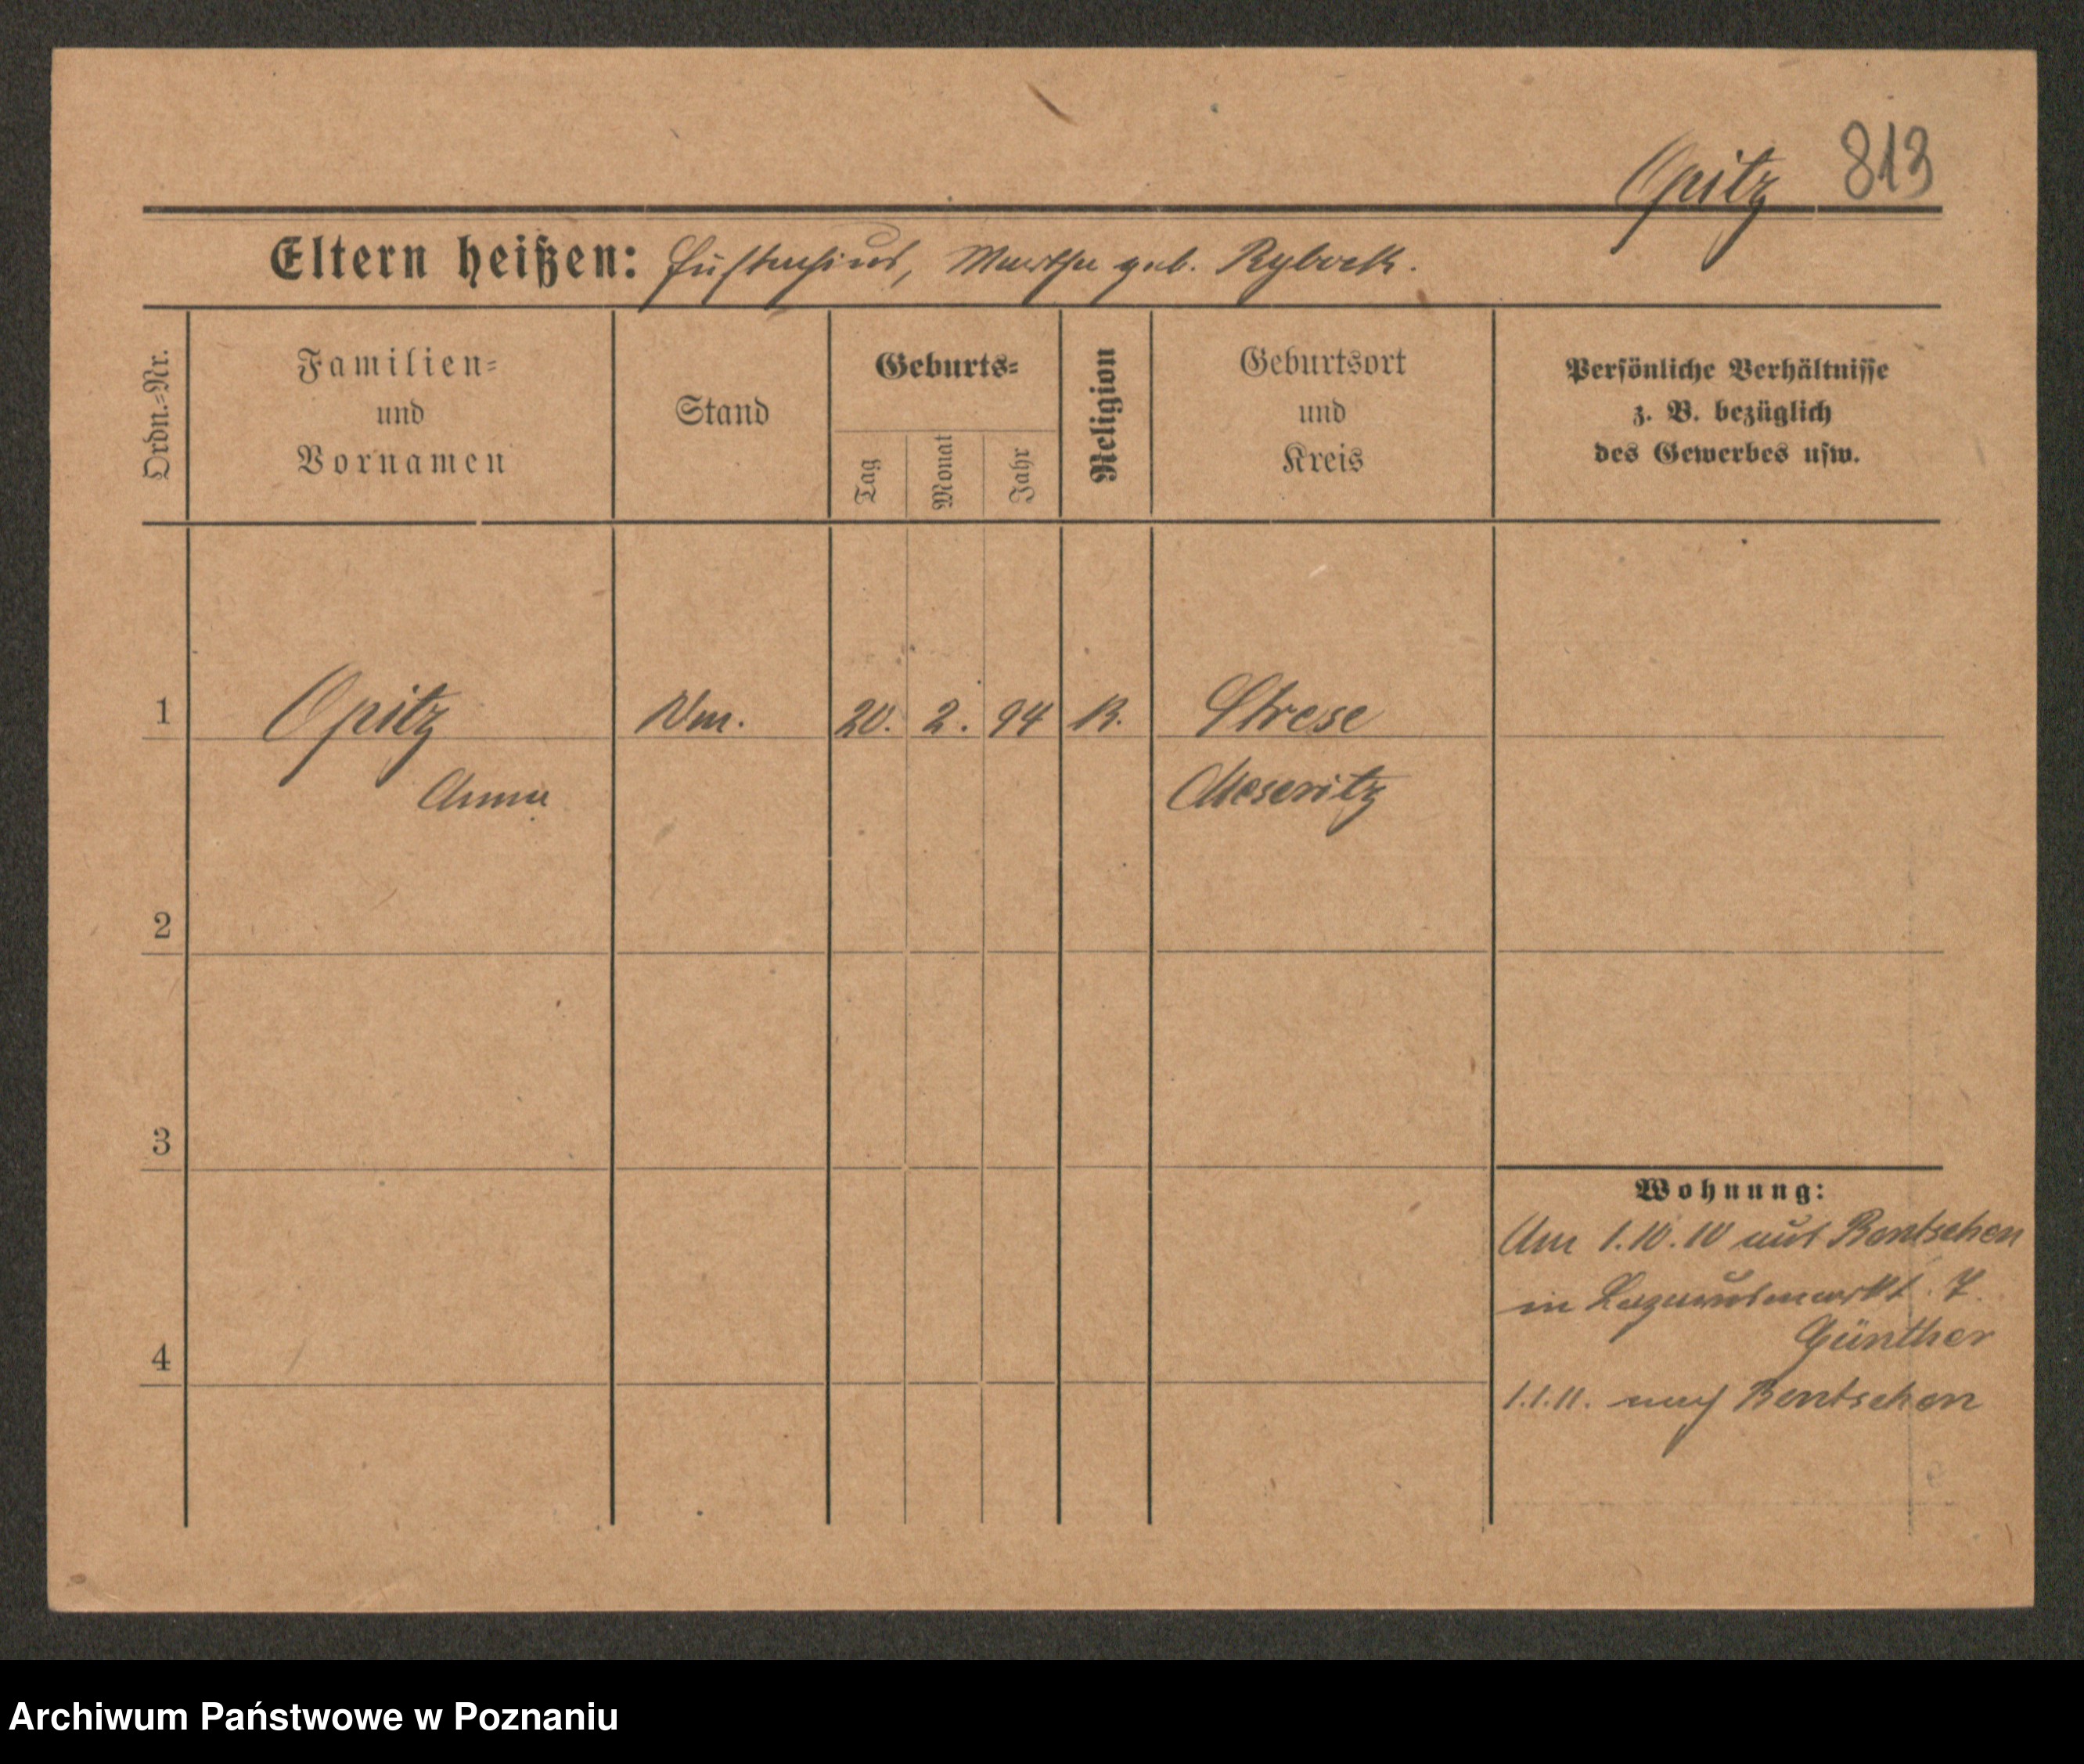 Opitz 813
Eltern heißen: Eustachius, Martha geb. Ryback.
Ordn.=Nr.
Familien=
und
Vornamen
Stand
Geburts=
Tag
Monat
Jahr
Religion
Geburtsort
und
Kreis
Persönliche Verhältnisse
z. B. bezüglich
des Gewerbes usw.
1 Opitz 20. 2. 94 K. Strese
Anna Meseritz
2
3
Wohnung:
Am 1.10.10 aus Bentschen
in Lazarusmarkt. 7.
Günther
4
1.1.11. nach Bentschen
Archiwum Państwowe w Poznaniu